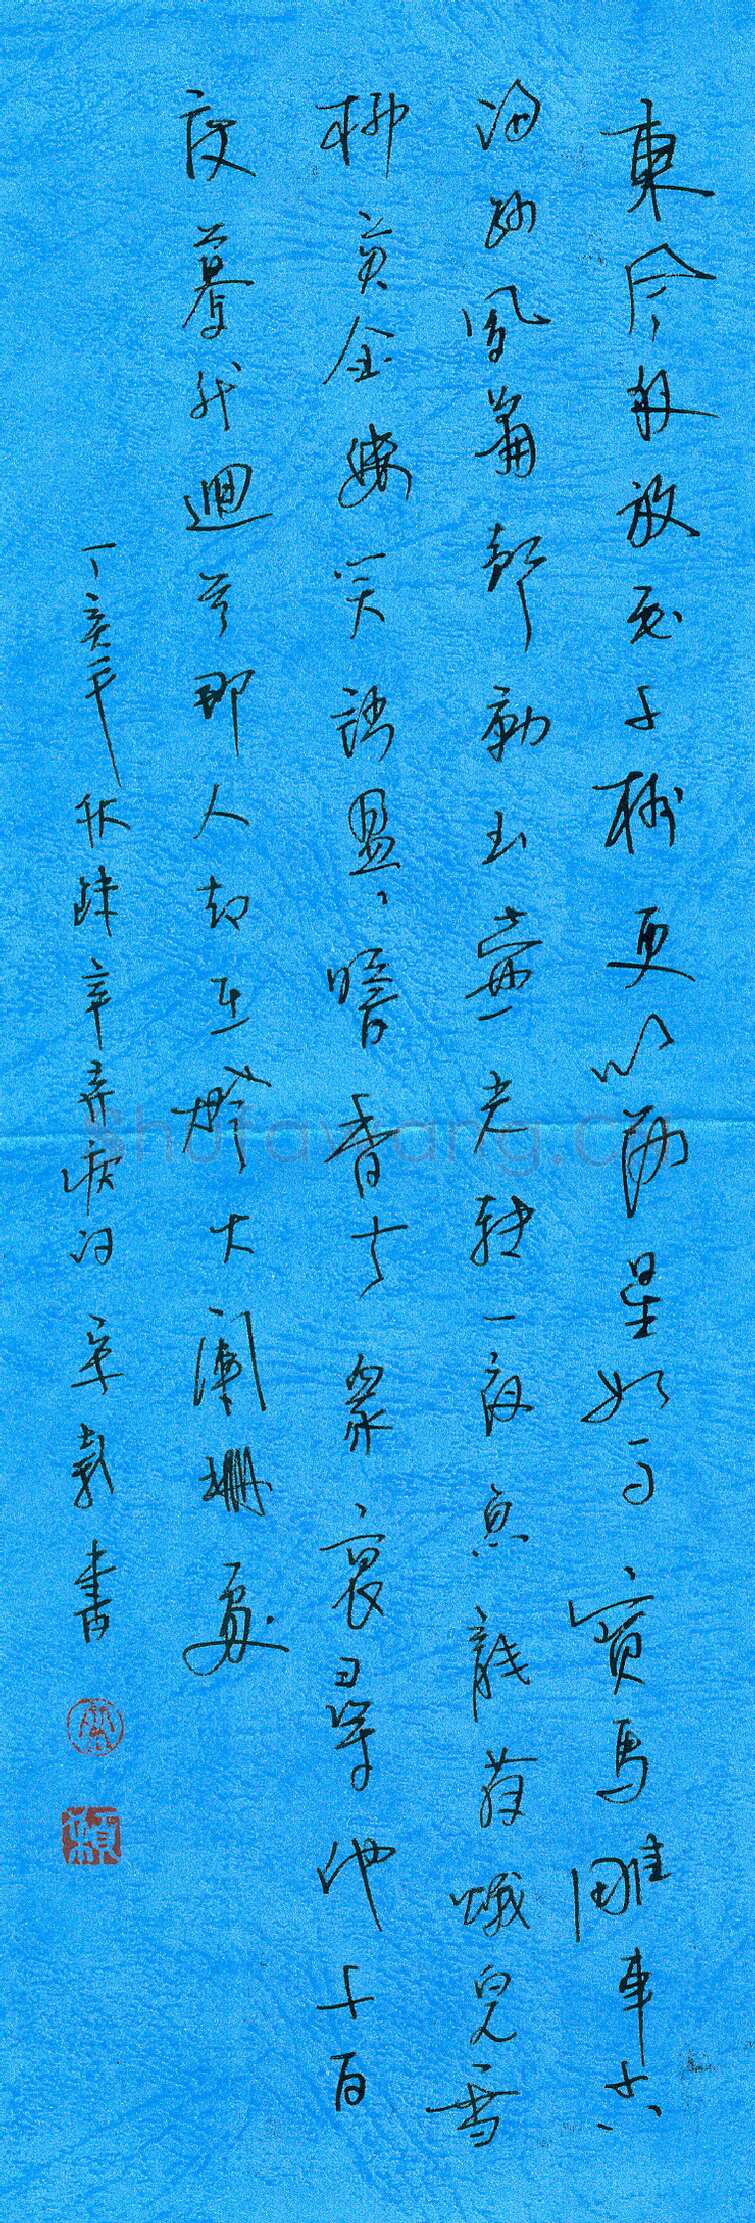 東風夜放花千樹更吹落星如雨寶馬雕車香
滿路鳳簫聲動玉壺光轉一夜魚龍舞蛾兒雪
柳黃金縷笑語盈盈暗香去眾裏尋他千百
度驀然迴首那人却在燈火闌珊處
丁亥年秋錄辛弃疾詞 書
shufawang.cn